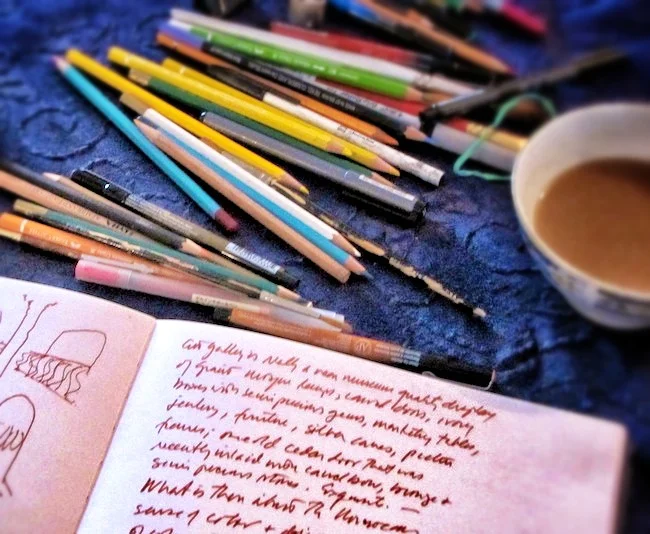 Art gallery is really a room museum quality display
of giant antique lamps, camel bone, ivory
boxes with semi precious gems, marketing tables,
jewelry, furniture, silver canes, picture
frames; one old cedar door that was
recently inlaid with camel bone, bronze +
semi precious stones. Exquisite. —
What is then about the Moroccan
sense of color +